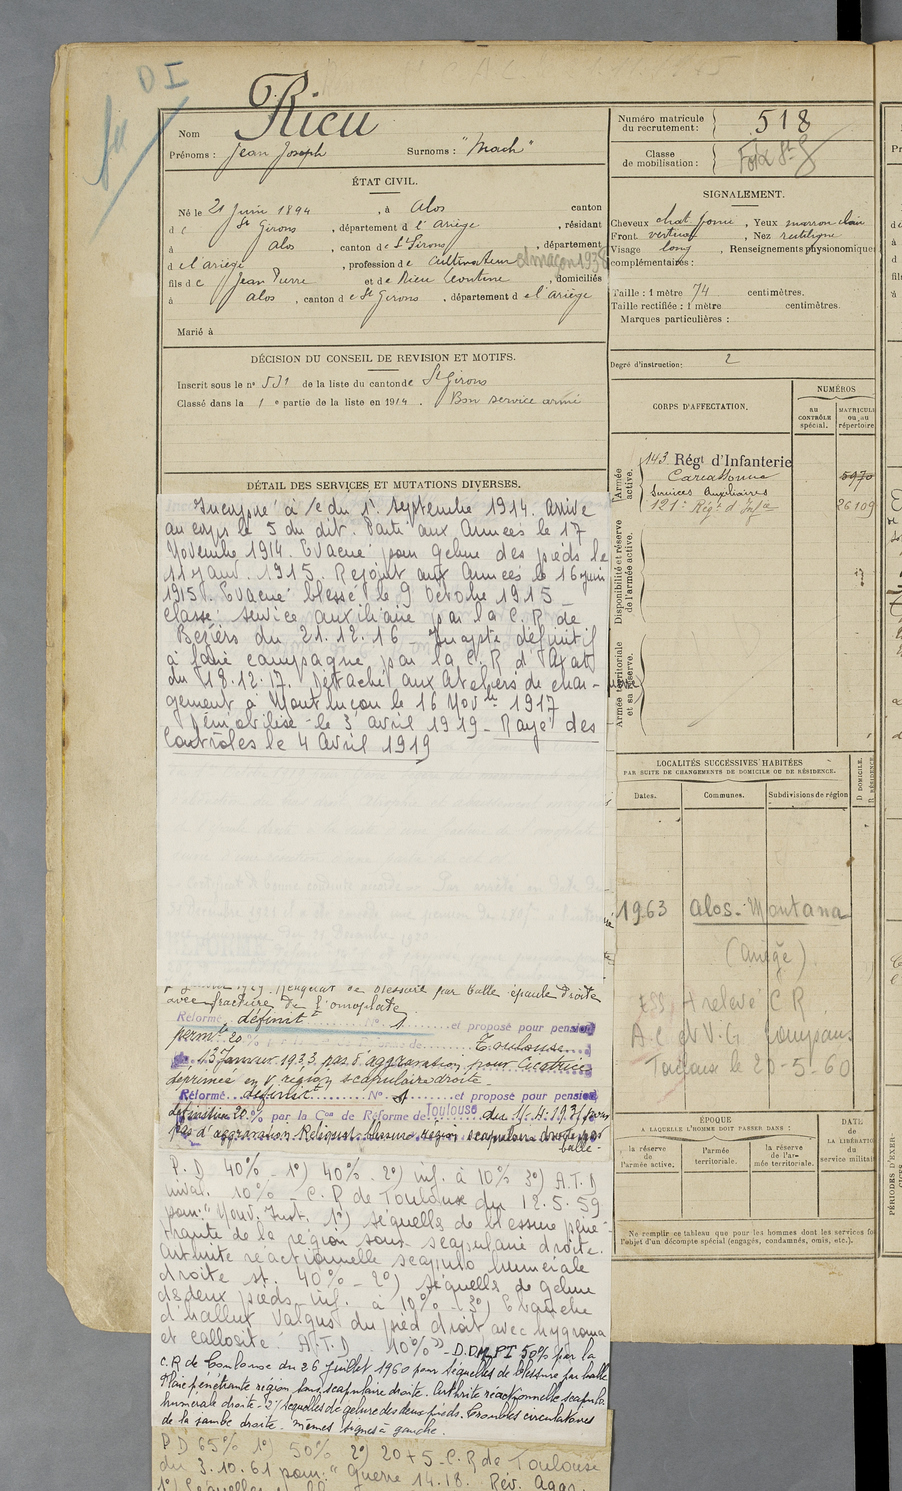 D I
Nom Rieu
Prénoms : Jean Joseph Surnoms : "Mach"
ÉTAT CIVIL.
Né le 21 Juin 1894, à Alos canton
de St Girons, département de l'Ariège, résidant
à Alos, canton de St Girons, département
de l'Ariège, profession de Cultivateur et maçon 1938
fils de Jean Pierre et de Rieu Léontine, domiciliés
à Alos, canton de St Girons, département de l'Ariège
Marié à
DÉCISION DU CONSEIL DE REVISION ET MOTIFS.
Inscrit sous le n° 531 de la liste du canton de St Girons
Classé dans la 1e partie de la liste en 1914. Bon service armé
DÉTAIL DES SERVICES ET MUTATIONS DIVERSES.
Incorporé à /c du 1er Septembre 1914. Arrivé
au corps le 5 du dit. Parti aux Armées le 17
Novembre 1914. Evacué pour gelure des pieds le
11 Janv. 1915. Rejoint aux Armées le 16 juin
1915. Evacué blessé le 9 Octobre 1915 -
Classé service auxiliaire par la C.R de
Béziers du 21.12.16 - Inapte définitif
à faire campagne par la C.R d'
du 18.12.17. Détaché aux Ateliers de char-
gement à Montluçon le 16 Novbre 1917
Démobilisé le 3 avril 1919 - Rayé des
Contrôles le 4 Avril 1919
Reliquat de blessure par balle épaule droite
avec fracture de l'omoplate
Réformé définitt N° 1 et proposé pour pension
permte 20 % Toulouse
13 Janvier 1933, pas d'aggravation, pour Cicatrice
déprimée en région scapulaire droite
Réformé définitt N° 1 et proposé pour pension
définitive 20 % par la Con de Réforme de Toulouse du
pas d'aggravation Reliquat blessure région scapulaire droite par
balle -
P.D 40% - 1°) 40% - 2°) inf. à 10% 3°) A.T.D
nival. 10% - C.R de Toulouse du 12.5.59
pour: "Nouv. Inst. 1°) séquelles de blessure péné-
trante de la région sous scapulaire droite.
Arthrite réactionnelle scapulo humérale
droite st. 40% - 2°) Séquelles de gelure
des deux pieds inf. à 10% - 3°) Ebauche
d'hallux Valgus du pied droit avec hygroma
et callosité. A.T.D 10%" - D.D.M. PI 50% par la
C.R de Toulouse du 26 Juillet 1960 pour séquelles de blessure par balle
Plaie pénétrante région sous scapulaire droite. Arthrite réactionnelle scapulo
humérale droite - 2° séquelles de gelure des deux pieds. Troubles circulatoires
de la jambe droite. mêmes signes à gauche.
P D 65% 1°) 50% 2°) 20+5 - C.R de Toulouse
du 3.10.61 pour: "Guerre 14.18. Rév. Aggr.
Numéro matricule du recrutement : 518
Classe de mobilisation :
SIGNALEMENT.
Cheveux chat. foncé, Yeux marron clair
Front vertical, Nez rectiligne
Visage long, Renseignements physionomiques
complémentaires :
Taille : 1 mètre 74 centimètres.
Taille rectifiée : 1 mètre centimètres.
Marques particulières :
Degré d'instruction : 2
CORPS D'AFFECTATION.
NUMÉROS
au CONTRÔLE spécial.
MATRICULE ou au répertoire
Armée active.
143 Régt d'Infanterie
Carcassonne 5970
Services Auxiliaires
121e Régt d'Infie 26109
Disponibilité et réserve de l'armée active.
Armée territoriale et sa réserve.
LOCALITÉS SUCCESSIVES HABITÉES
PAR SUITE DE CHANGEMENTS DE DOMICILE OU DE RÉSIDENCE.
Dates. Communes. Subdivisions de région
D DOMICILE. R RÉSIDENCE
1963 Alos - Montana
(Ariège)
relevé C R
A.C et V.G
Toulouse le 20-5-60
ÉPOQUE
A LAQUELLE L'HOMME DOIT PASSER DANS :
la réserve de l'armée active.
l'armée territoriale.
la réserve de l'armée territoriale.
DATE de LA LIBÉRATION du service militaire
Ne remplir ce tableau que pour les hommes dont les services
l'objet d'un décompte spécial (engagés, condamnés, omis, etc.).
PÉRIODES D'EXER-
CICES